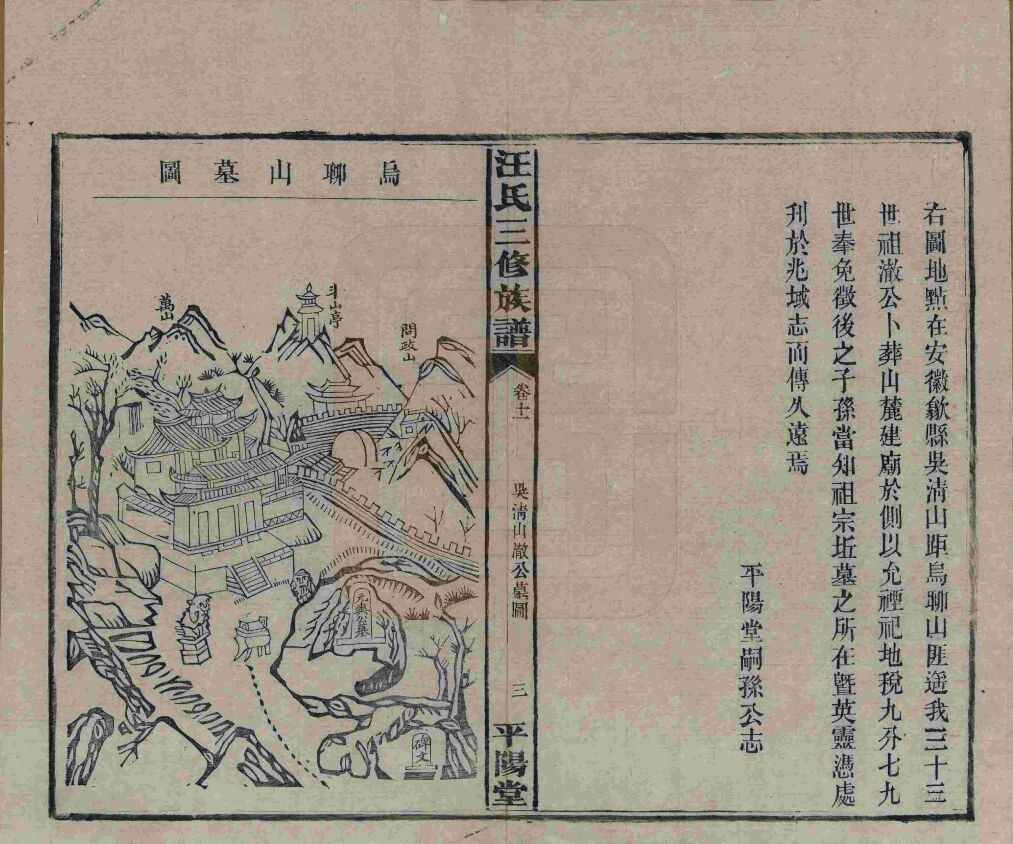 右圖地點在安徽歙縣吳清山距烏聊山匪遥我三十三
世祖澈公卜葬山麓建廟於側以允禋祀地稅九分七九
世奉免徵後之子孫當知祖宗坵墓之所在曁英靈憑處
刋於兆域志而傳久遠焉
平陽堂嗣孫公志
汪氏三修族譜
卷十一
吳清山澈公墓圖
三
平陽堂
烏聊山墓圖
萬山
斗山亭
問政山
碑文